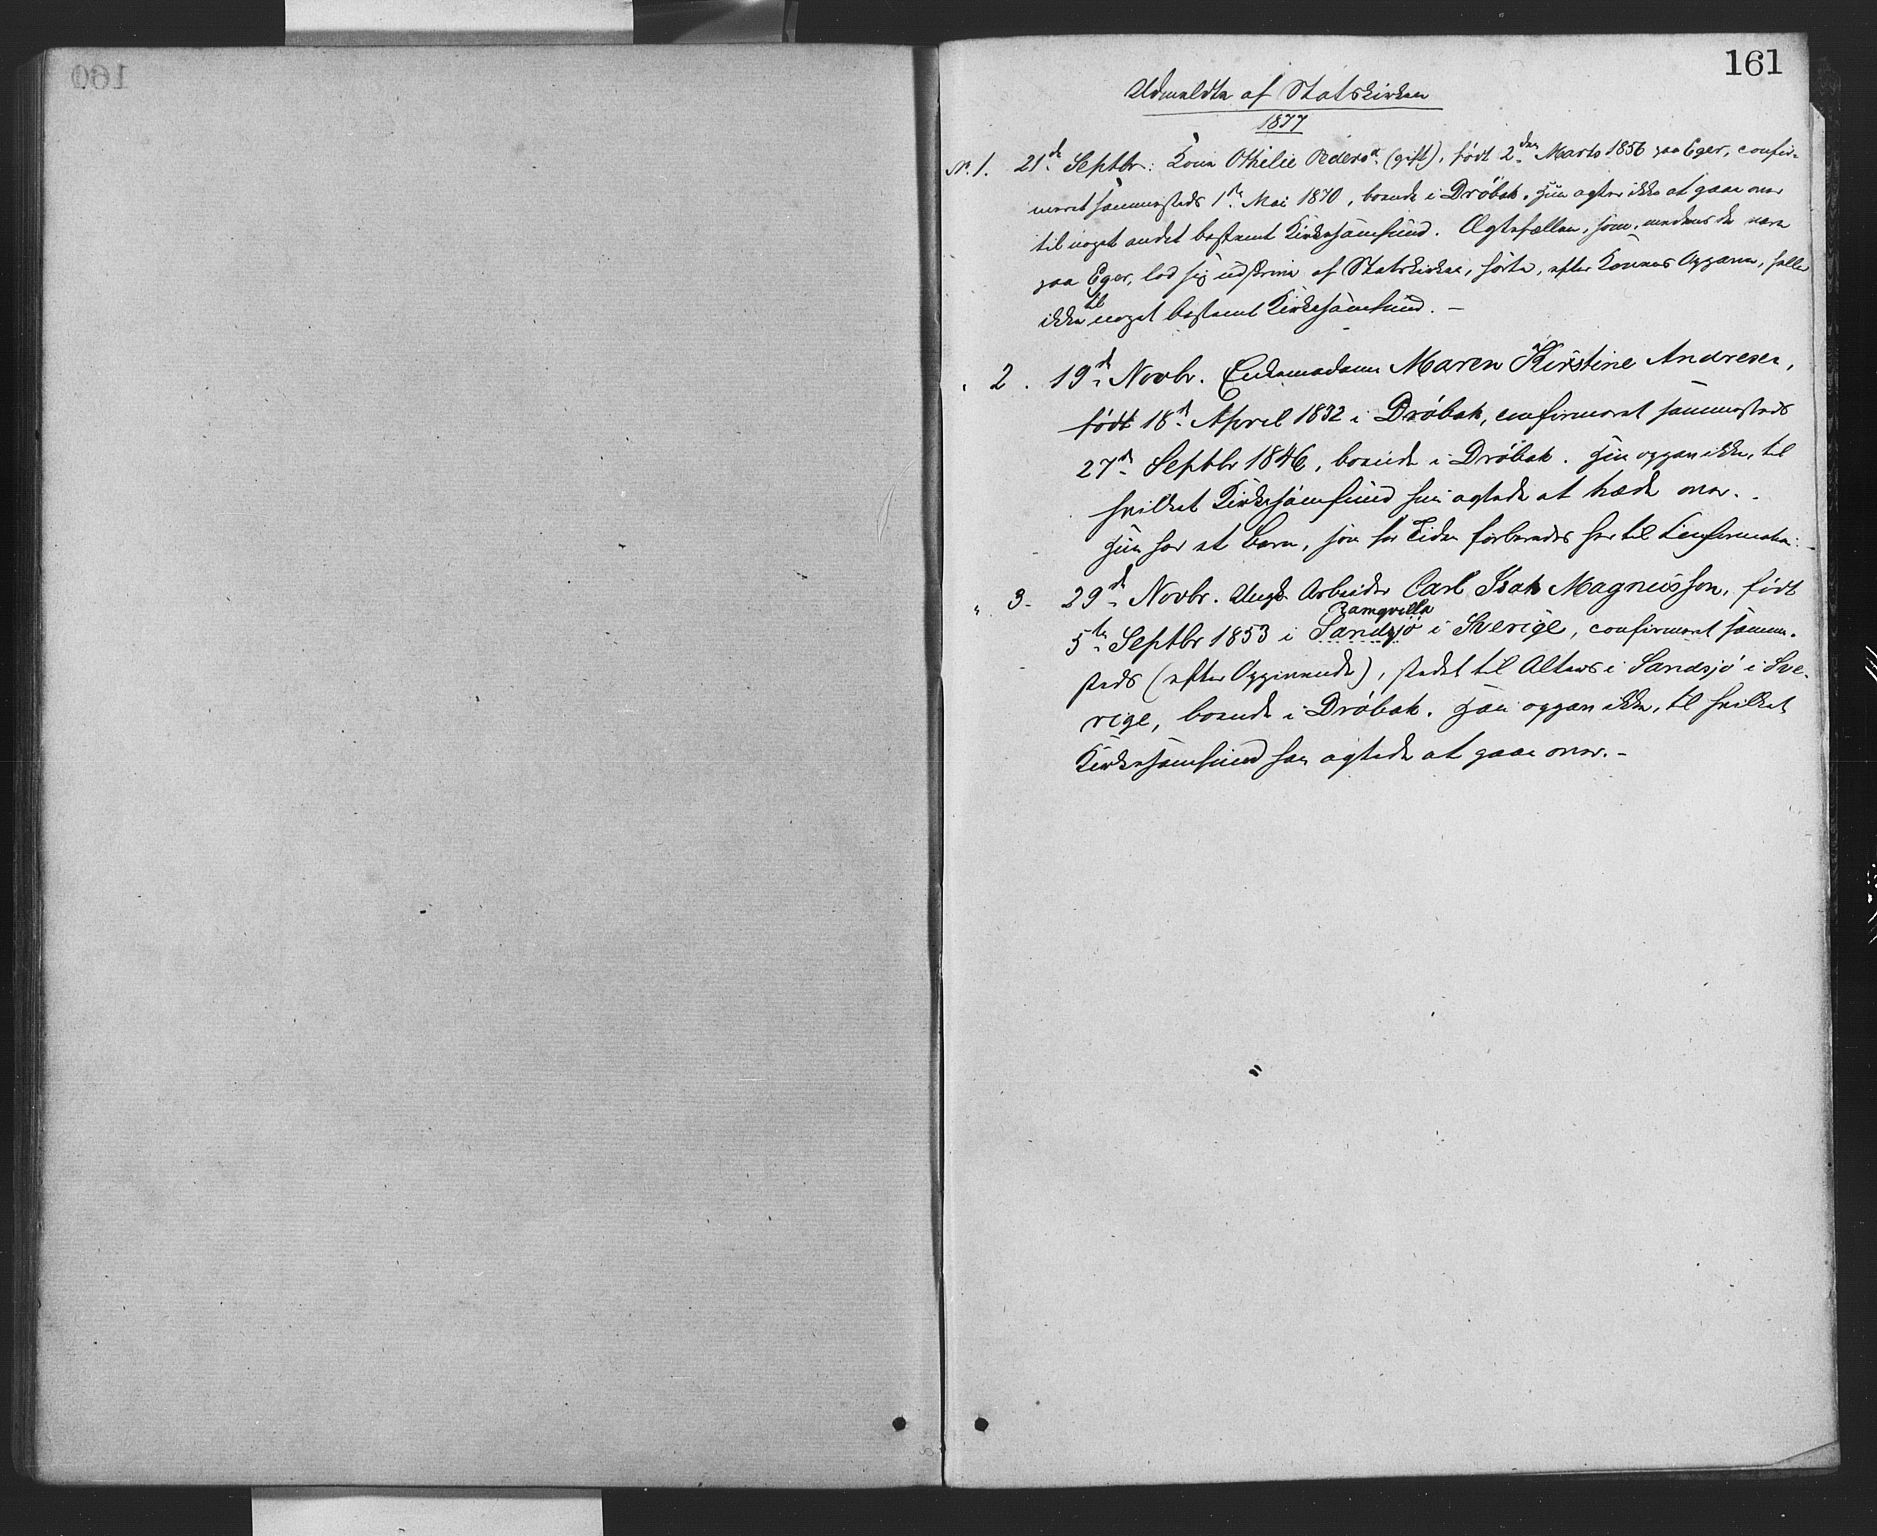 160
161
Udmeldte af Statskirken
1877
N. 1. 21de Septbr: Kone Othilie Pedersdt (gift), født 2den Marts 1856 paa Eger, confir-
meret sammesteds 1ste Mai 1870, boende i Drøbak. Hun agter ikke at gaae over
til noget andet bestemt Kirkesamfund. Ægtefællen, som, medens de vare
paa Eger, lod sig udskrive af Statskirken, hørte, efter Konens Opgave, heller
ikke til noget bestemt Kirkesamfund. –
" 2. 19de Novbr. Enkemadame Maren Kirstine Andresen,
født 18de April 1832 i Drøbak, confirmeret sammesteds
27de Septbr 1846, boende i Drøbak. Hun opgav ikke, til
hvilket Kirkesamfund hun agtede at træde over.
Hun har et Barn, som for Tiden forberedes her til Confirmation. –
" 3. 29de Novbr. Ungk. Arbeider Carl Isak Magnusson, født
5te Septbr 1853 i Sandsjö i Sverige, confirmeret samme-
Ramqvilla
steds (efter Opgivende), stedet til Alters i Sandsjö i Sve-
rige, boende i Drøbak. Han opgav ikke, til hvilket
Kirkesamfund han agtede at gaae over. –